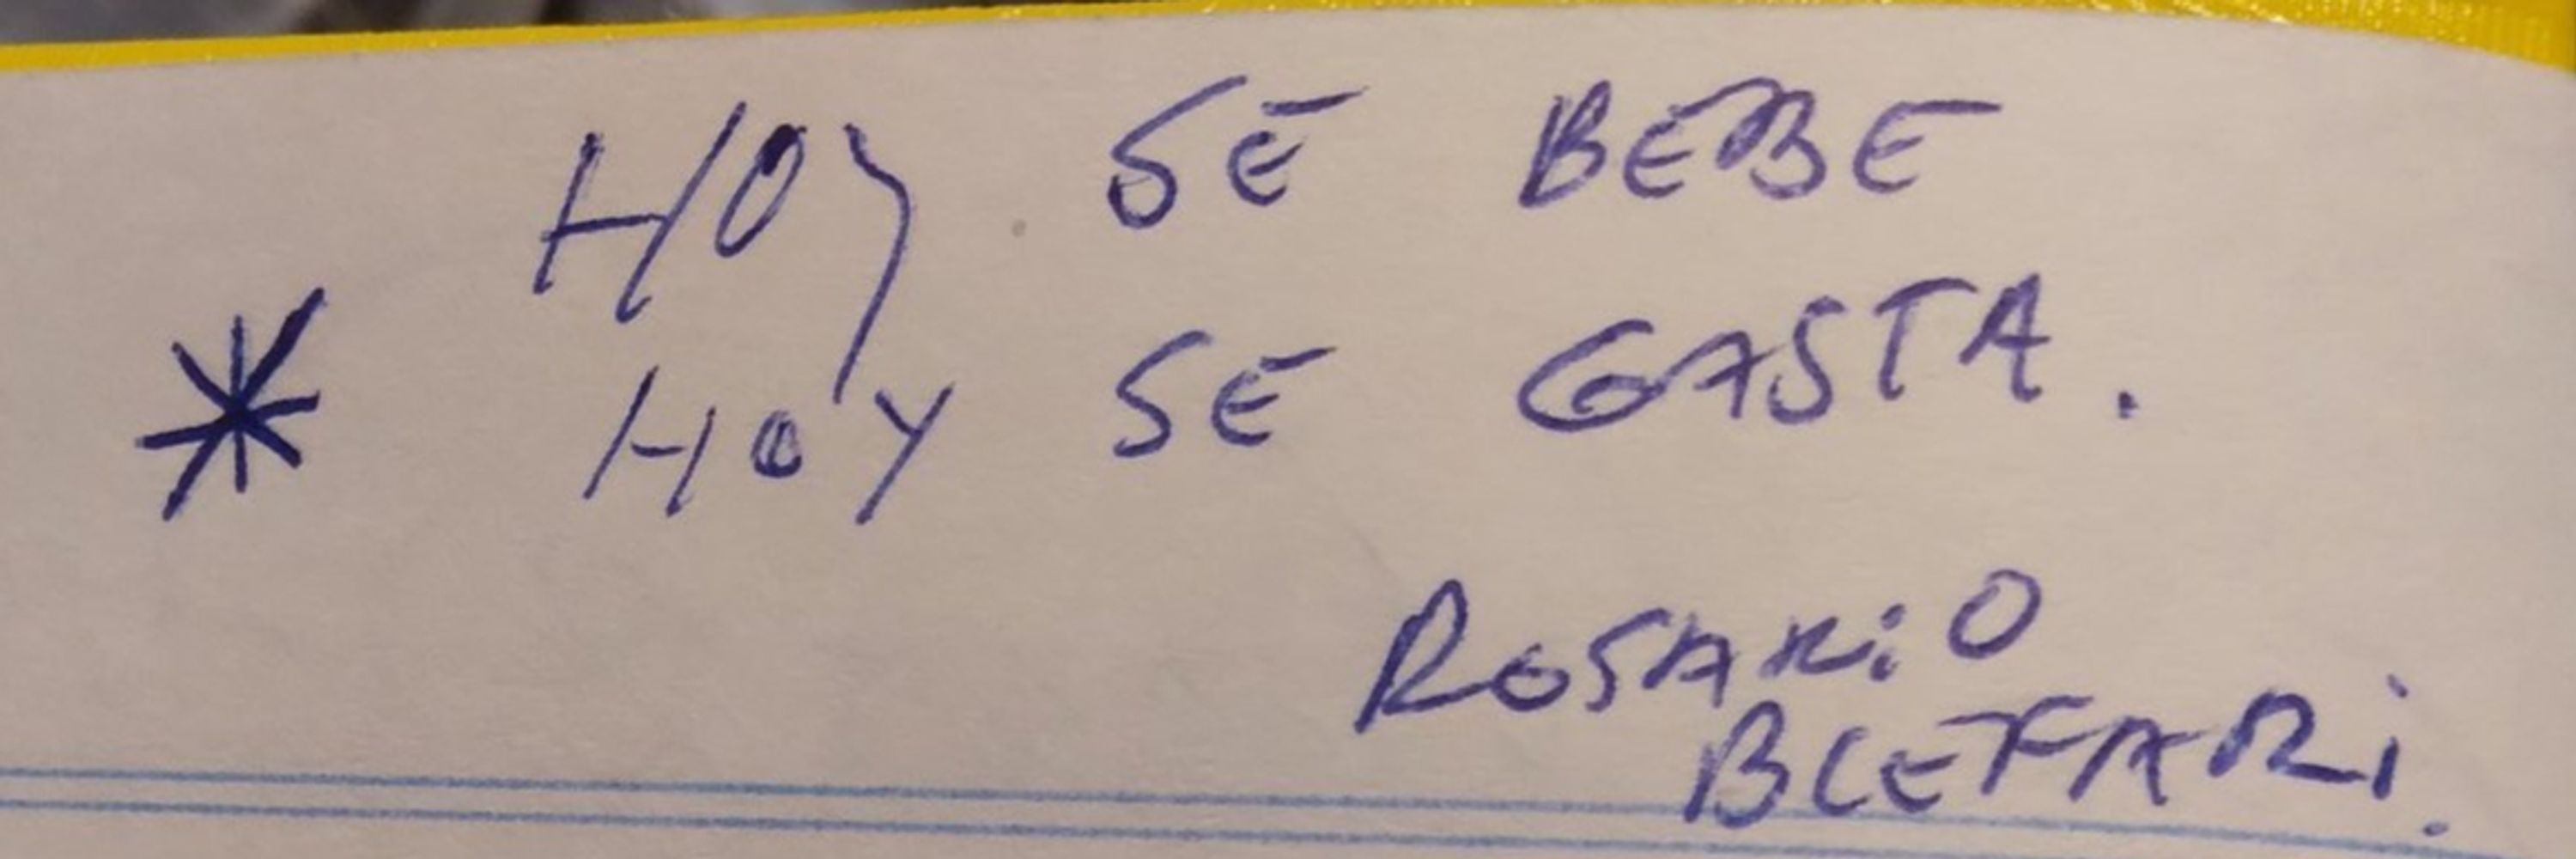 HOY SE BEBE
* HOY SE GASTA.
ROSARiO
BLEFARi.